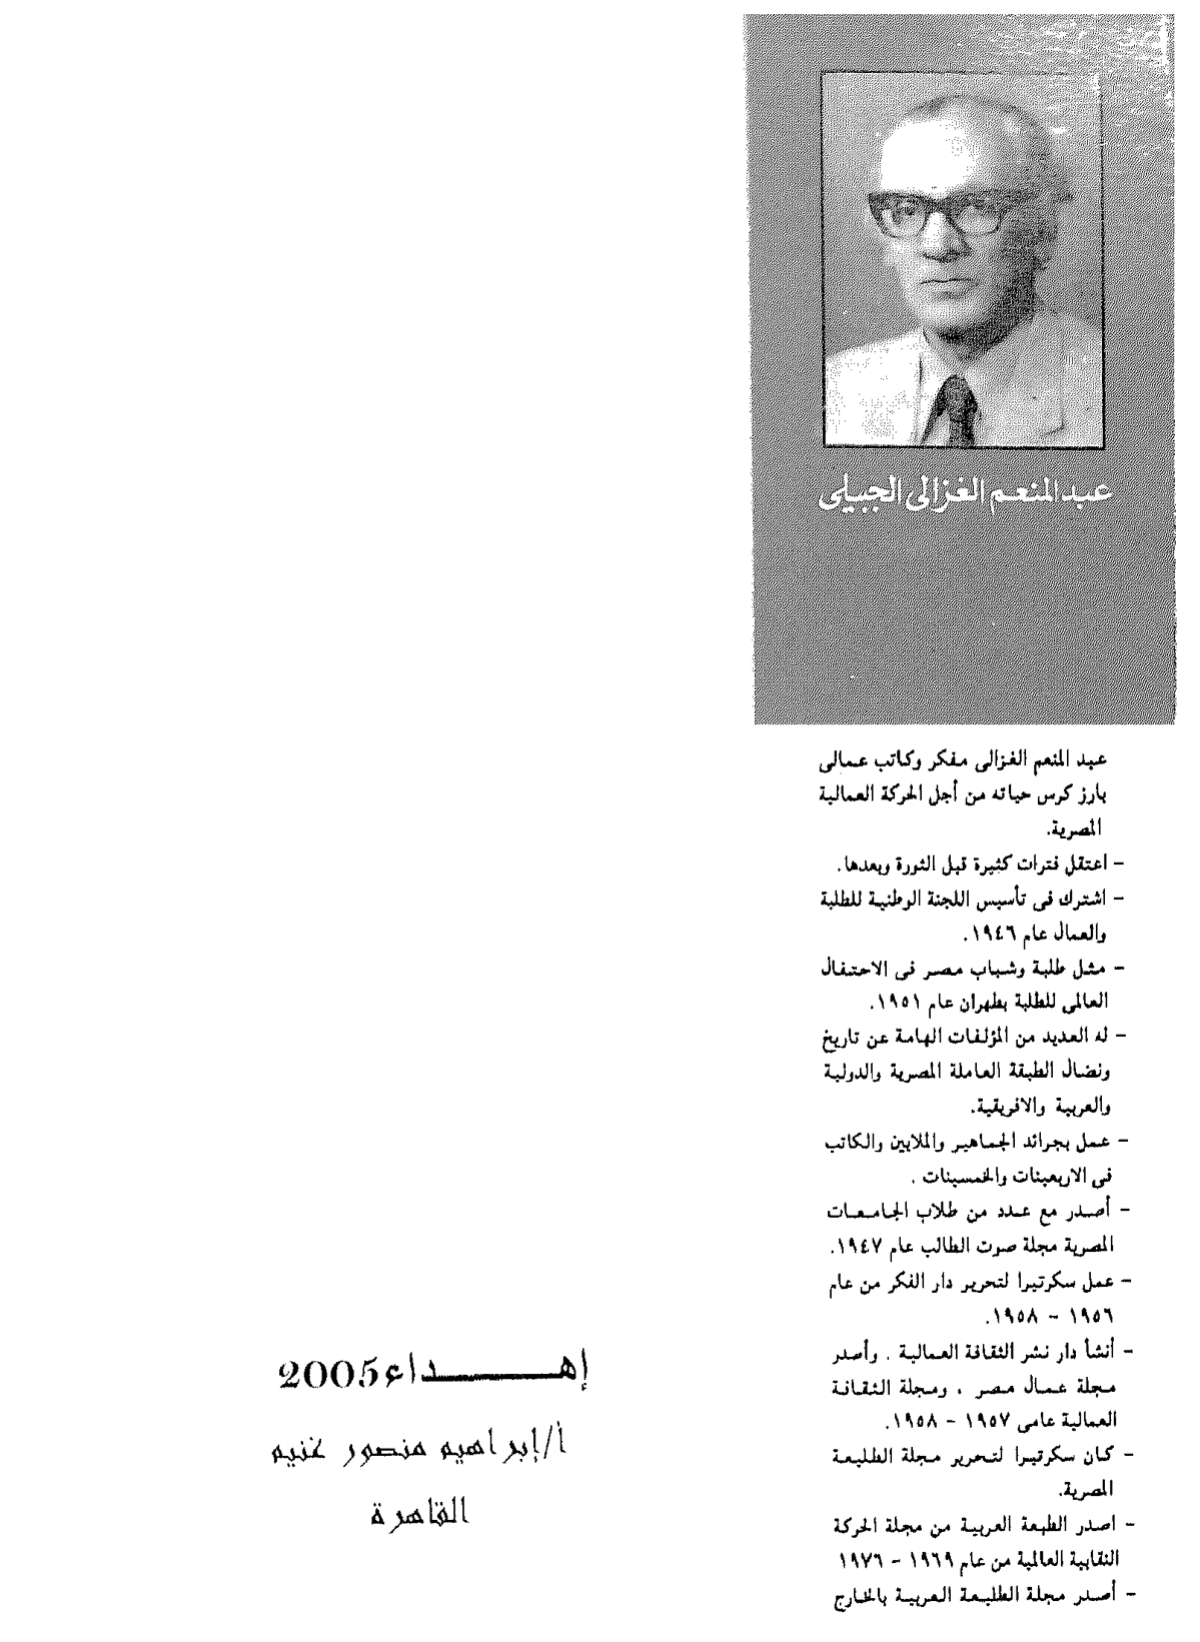 عبد المنعم الغزالى الجبيلى
عبد المنعم الغزالى مفكر وكاتب عمالى
بارز كرس حياته من أجل الحركة العمالية
المصرية.
– اعتقل فترات كثيرة قبل الثورة وبعدها.
– اشترك فى تأسيس اللجنة الوطنية للطلبة
والعمال عام ١٩٤٦.
– مثل طلبة وشباب مصر فى الاحتفال
العالمى للطلبة بطهران عام ١٩٥١.
– له العديد من المؤلفات الهامة عن تاريخ
ونضال الطبقة العاملة المصرية والدولية
والعربية والافريقية.
– عمل بجرائد الجماهير والملايين والكاتب
فى الاربعينات والخمسينات .
– أصدر مع عدد من طلاب الجامعات
المصرية مجلة صوت الطالب عام ١٩٤٧.
– عمل سكرتيرا لتحرير دار الفكر من عام
١٩٥٦ – ١٩٥٨.
– أنشأ دار نشر الثقافة العمالية . وأصدر
مجلة عمال مصر ، ومجلة الثقافة
العمالية عامى ١٩٥٧ – ١٩٥٨.
– كان سكرتيرا لتحرير مجلة الطليعة
المصرية.
– اصدر الطبعة العربية من مجلة الحركة
النقابية العالمية من عام ١٩٦٩ – ١٩٧٦
– أصدر مجلة الطليعة العربية بالخارج
إهداء 2005
أ/إبراهيم منصور غنيم
القاهرة